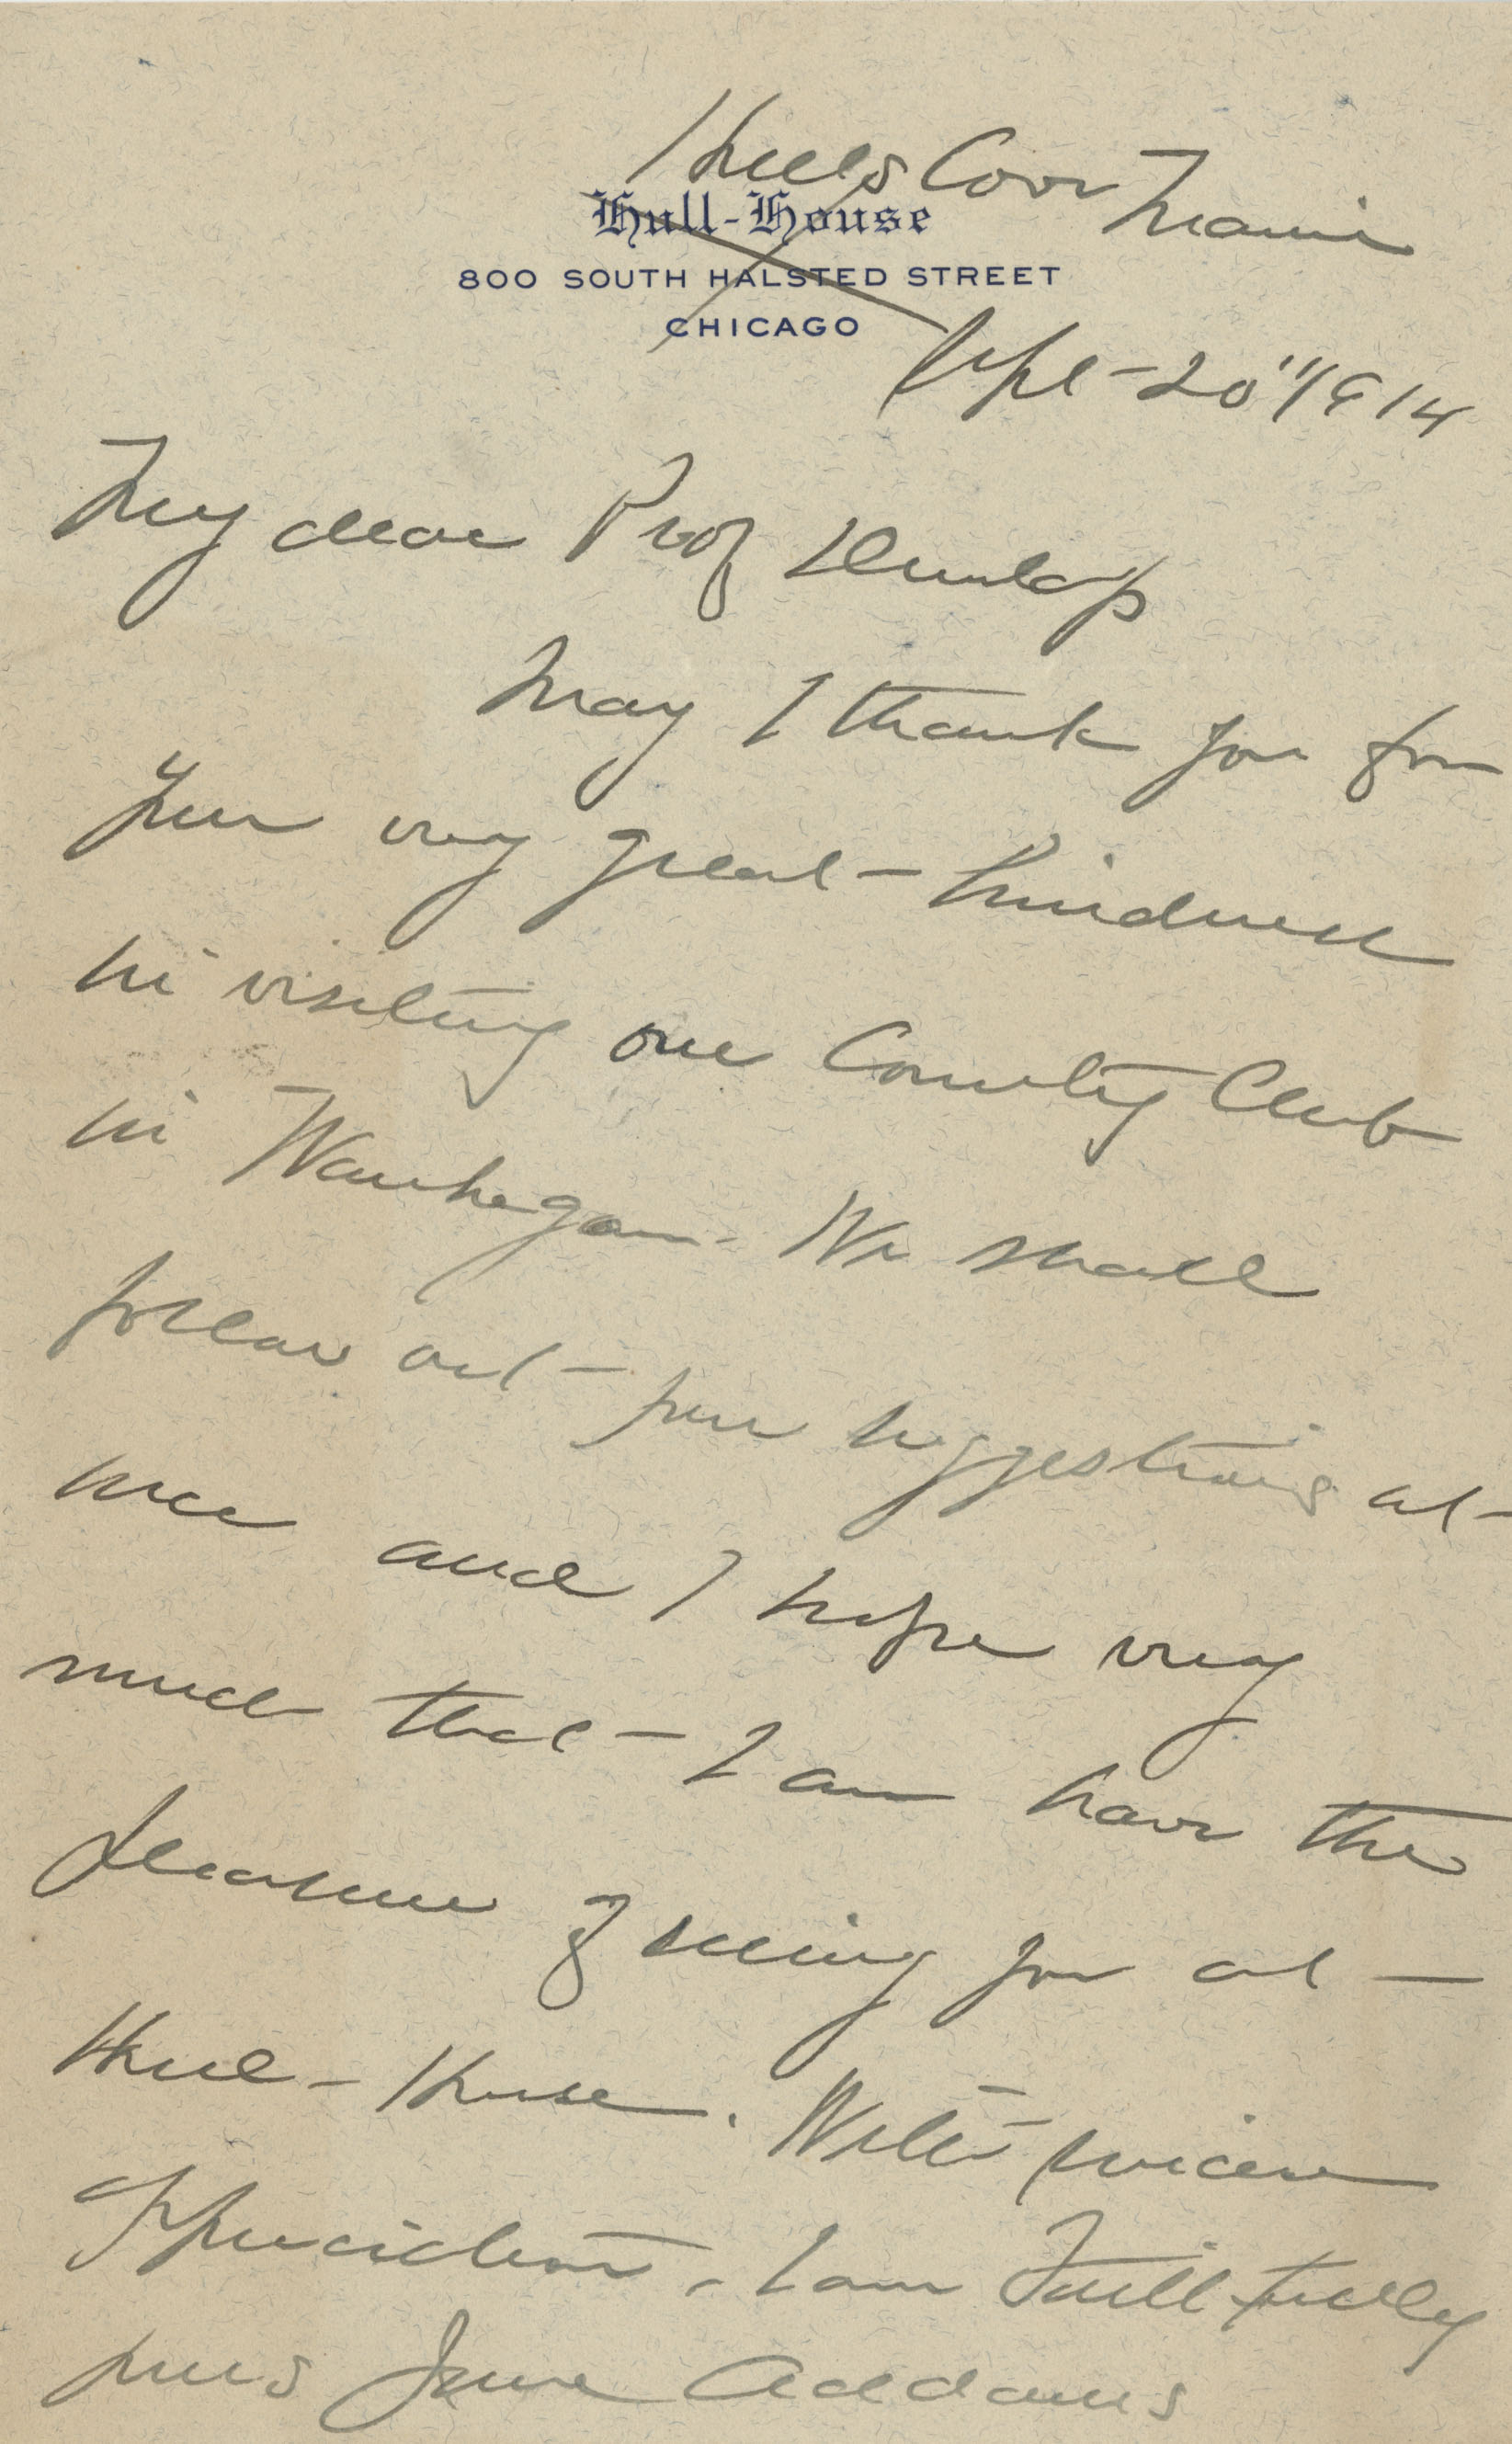 Hulls Cove Maine
Hull-House
800 SOUTH HALSTED STREET
CHICAGO
Sept - 20" 1914
My dear Prof Dunlap
May I thank you for
your very great - kindness
in visiting our Country Club
in Waukegan. We shall
follow out - your suggestions at -
once and I hope very
much that - I am have the
pleasure of seeing you at -
Hull - House. With sincere
appreciation, I am Faithfully
yours Jane Addams